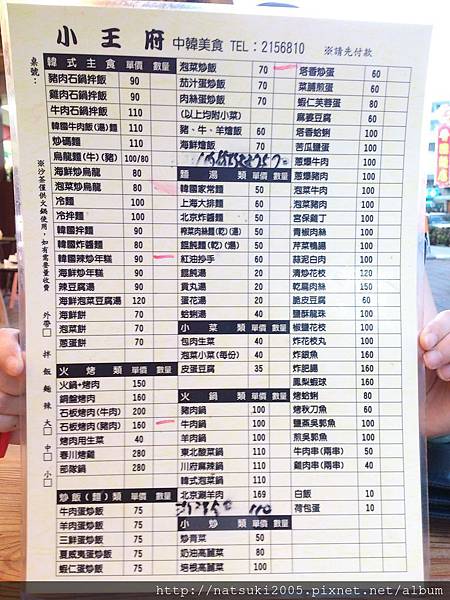 小王府 中韓美食 TEL：2156810 ※請先付款
桌號：
※沙茶僅供火鍋使用，如有需要量收費
外帶□ 拌飯麵辣 大□ 中□ 小□
韓式主食 單價 數量
豬肉石鍋拌飯 90
雞肉石鍋拌飯 90
牛肉石鍋拌飯 110
韓國牛肉飯(湯)麵 110
炒碼麵 110
烏龍麵(牛)(豬) 100/80
海鮮炒烏龍 80
泡菜炒烏龍 80
冷麵 100
冷拌麵 100
韓國拌麵 90
韓國炸醬麵 80
韓國辣炒年糕 90
海鮮炒年糕 90
辣豆腐湯 80
海鮮泡菜豆腐湯 120
海鮮餅 70
泡菜餅 70
蔥蛋餅 70
火烤類 單價 數量
火鍋+烤肉 150
銅盤烤肉 160
石板烤肉(牛肉) 200
石板烤肉(豬肉) 160
烤肉用生菜 40
春川烤雞 280
部隊鍋 280
炒飯(麵)類 單價 數量
牛肉蛋炒飯 75
羊肉蛋炒飯 75
三鮮蛋炒飯 75
夏威夷蛋炒飯 75
蝦仁蛋炒飯 75
泡菜炒飯 70
茄汁蛋炒飯 70
肉絲蛋炒飯 70
(以上均附小菜)
豬、牛、羊燴飯 60
海鮮燴飯 70
麵湯類 單價 數量
韓國家常麵 50
上海大排麵 60
北京炸醬麵 50
榨菜肉絲麵(乾)(湯) 50
餛飩麵(乾)(湯) 50
紅油抄手 60
餛飩湯 50
貢丸湯 30
蛋花湯 30
蛤蜊湯 50
小菜類 單價 數量
包肉生菜 40
泡菜小菜(每份) 40
皮蛋豆腐 35
火鍋類 單價 數量
豬肉鍋 100
牛肉鍋 100
羊肉鍋 100
東北酸菜鍋 110
川府麻辣鍋 110
韓式泡菜鍋 110
北京涮羊肉 169
110
小炒類 單價 數量
炒青菜 50
奶油高麗菜 80
培根高麗菜 100
塔香炒蛋 60
菜脯煎蛋 60
蝦仁芙蓉蛋 80
麻婆豆腐 60
塔香蛤蜊 100
苦瓜鹽蛋 100
蔥爆牛肉 100
蔥爆豬肉 100
泡菜牛肉 100
泡菜豬肉 100
宮保雞丁 100
青椒肉絲 100
芹菜鴨腸 100
蒜泥白肉 100
清炒花枝 120
乾扁肉絲 150
脆皮豆腐 60
鹽酥龍珠 100
椒鹽花枝 100
炸花枝丸 100
炸銀魚 160
炸肥腸 160
鳳梨蝦球 160
烤蛤蜊 80
烤秋刀魚 60
鹽蒸吳郭魚 100
煎吳郭魚 100
牛肉串(兩串) 50
雞肉串(兩串) 40
白飯 10
荷包蛋 10
http://natsuki2005.pixnet.net/album